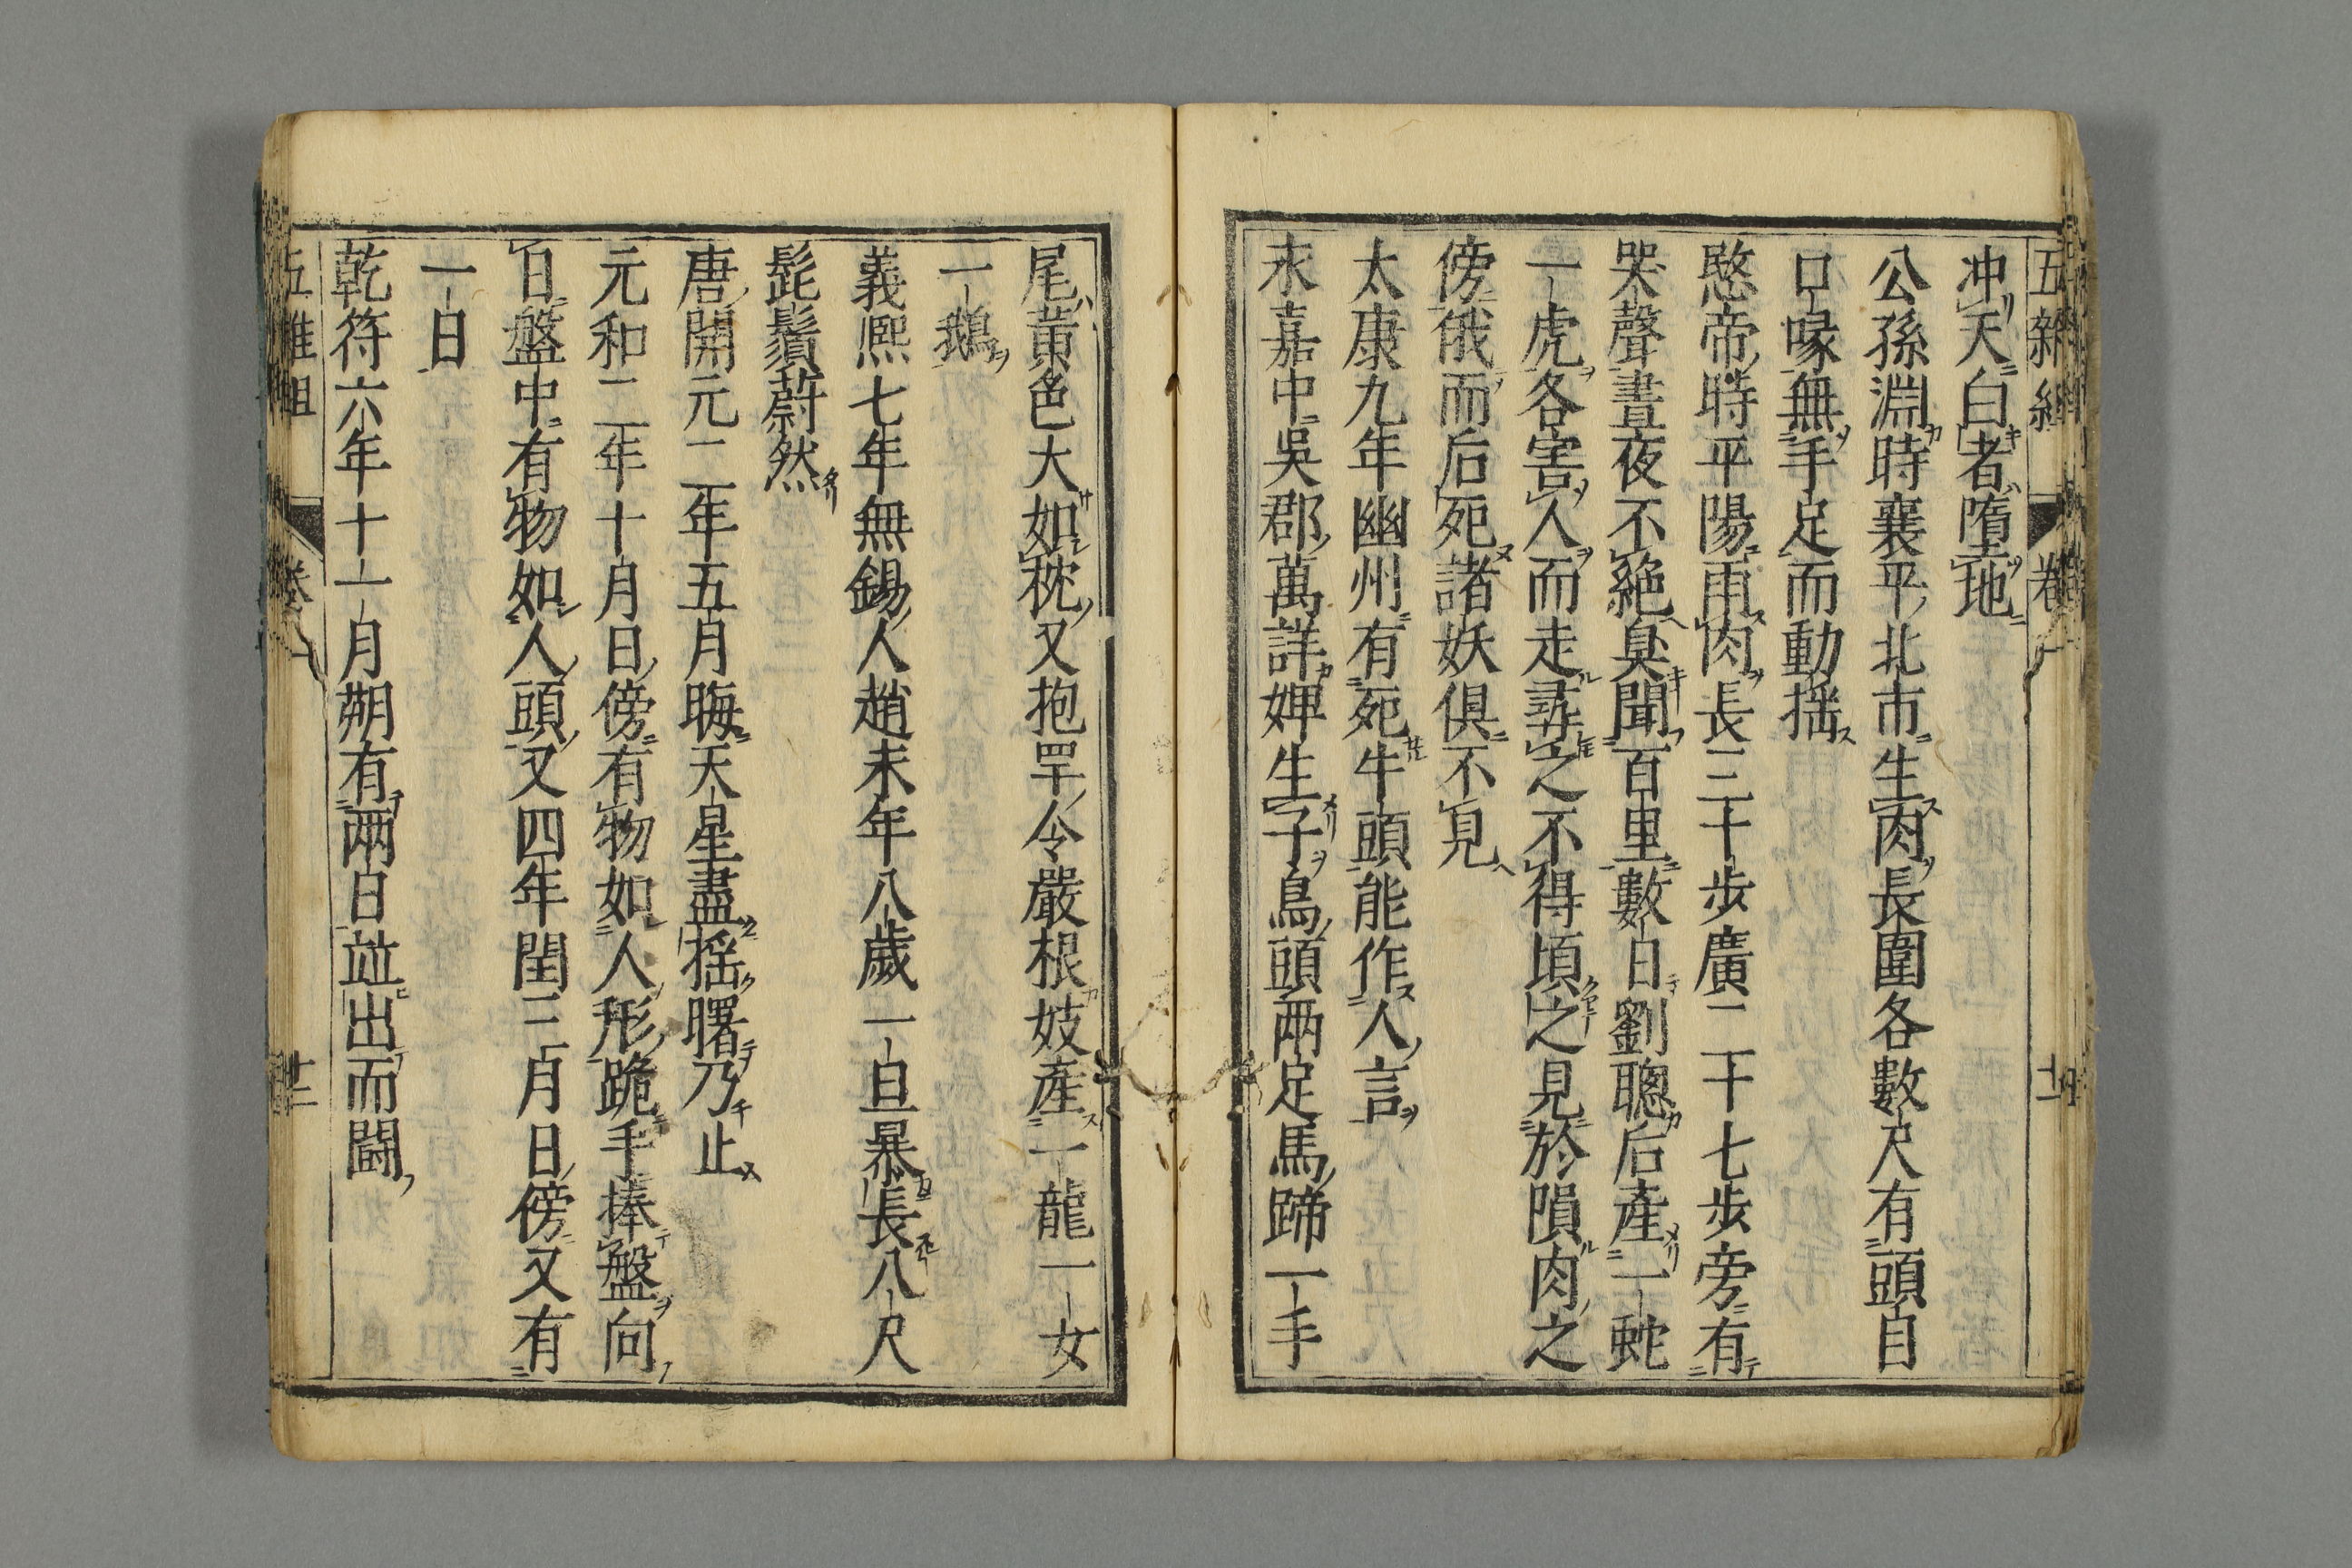 五雜組 卷一
冲天白者墮地
公孫淵時襄平北市生肉長圍各數尺有頭目
口喙無手足而動揺
愍帝時平陽雨肉長三十步廣二十七步旁有
哭聲晝夜不絶臭聞百里數日劉聰后產一蛇
一虎各害人而走尋之不得頃之見於隕肉之
傍俄而后死諸妖俱不見
太康九年幽州有死牛頭能作人言
永嘉中吳郡萬詳婢生子鳥頭兩足馬蹄一手
尾黃色大如枕又抱罕令嚴根妓產一龍一女
一鵝
義熙七年無錫人趙未年八歲一旦暴長八尺
髭鬚蔚然
唐開元二年五月晦天星盡揺曙乃止
元和二年十月日傍有物如人形跪手捧盤向
日盤中有物如人頭又四年閏三月日傍又有
一日
乾符六年十一月朔有兩日竝出而鬭
五雜組 卷一